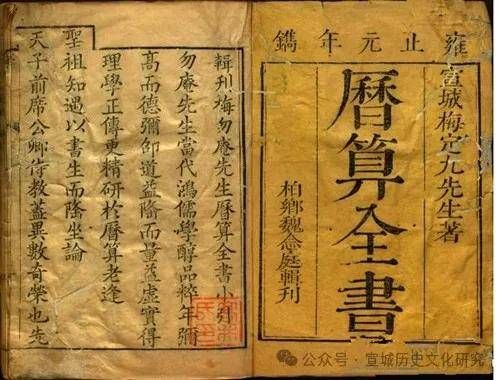 雍正元年鐫
宣城梅定九先生著
曆算全書
柏鄉魏念庭輯刊
輯刊梅勿庵先生曆算全書小引
勿庵先生當代鴻儒學醇品粹年彌
高而德彌卲道益隆而量益虛實得
理學正傳更精研於曆算老逢
聖祖知遇以書生而隆坐論
天子前席公卿侍教蓋異數奇榮也先
公众号·宣城历史文化研究